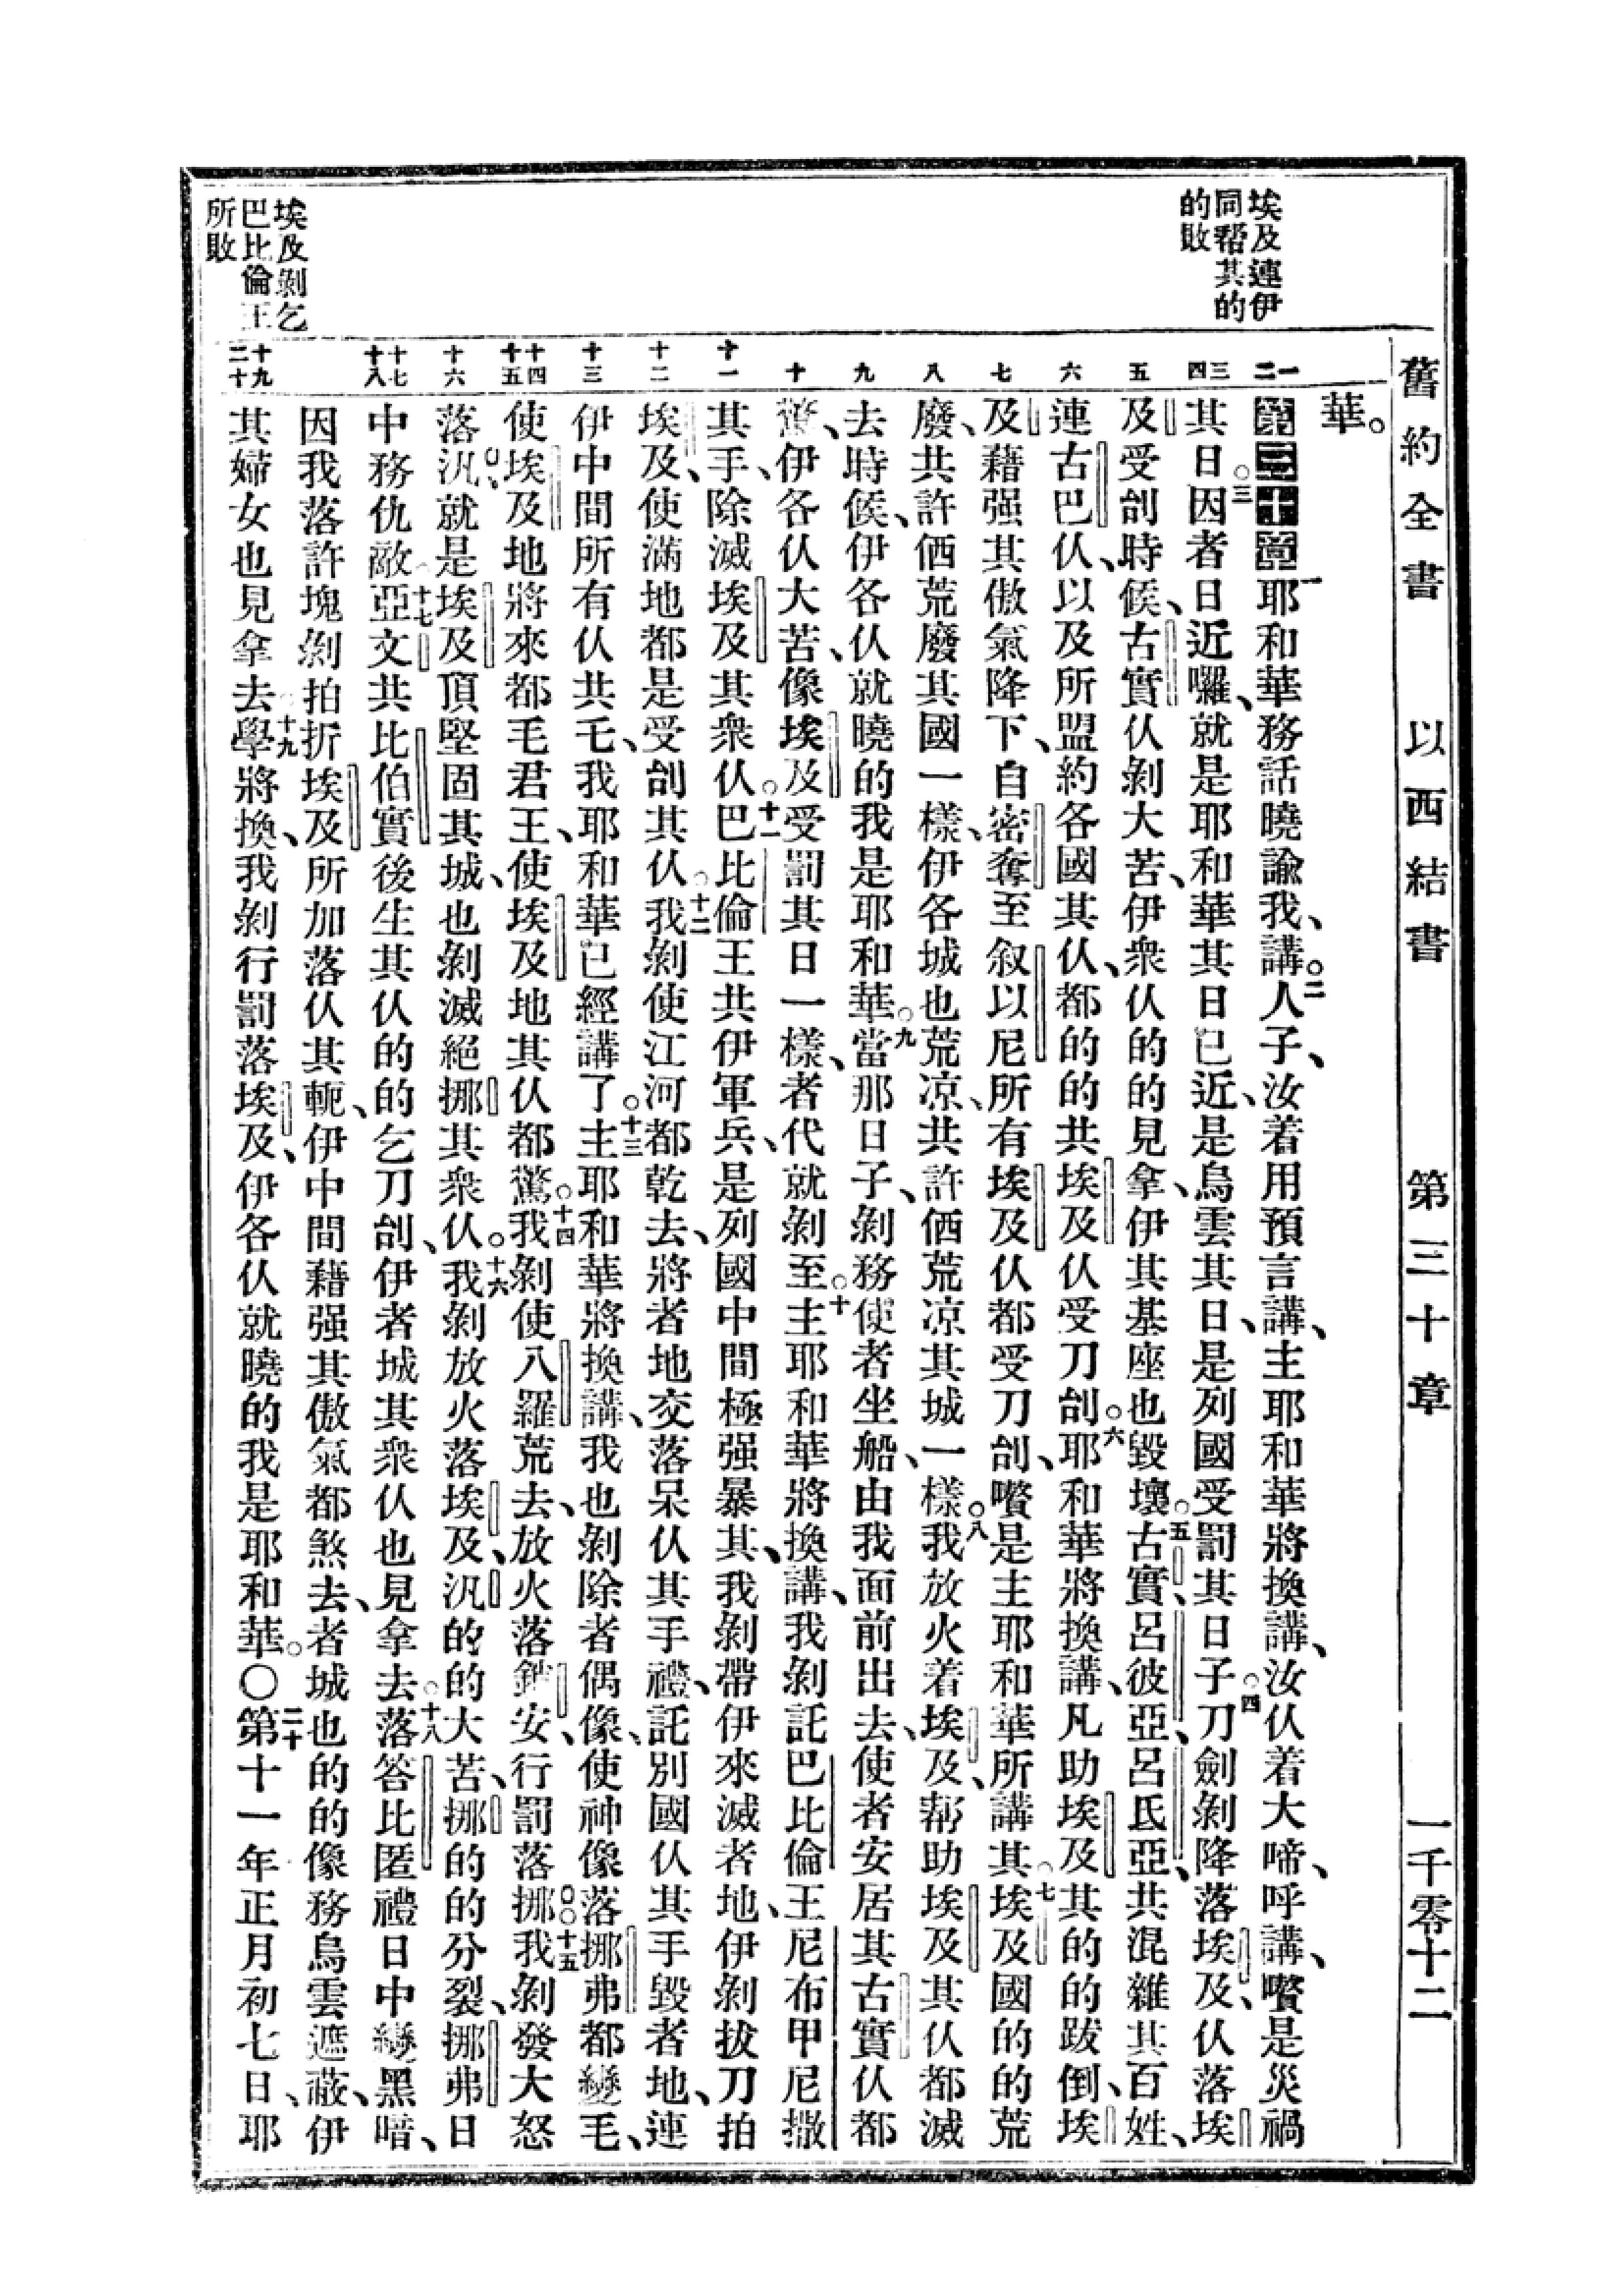 舊約全書 以西結書 第三十章 一千零十二
埃及連伊
同帮其的
的敗
埃及剝乞
巴比倫王
所敗
一 二 三 四 五 六 七 八 九 十 十一 十二 十三 十四 十五 十六 十七 十八 十九 二十
華。
第三十章 一耶和華務話曉諭我、講。二人子、汝着用預言講、主耶和華將換講、汝仈着大啼、呼講、嚽是災禍
其日。三因者日近囉、就是耶和華其日已近、是烏雲其日、是列國受罰其日子。四刀劍剝降落埃及、仈落埃
及受刣時候、古實仈剝大苦、伊衆仈的的見拿、伊其基座也毀壞。五古實、呂彼亞、呂氏亞、共混雜其百姓、
連古巴仈、以及所盟約各國其仈、都的的共埃及仈受刀刣。六耶和華將換講、凡助埃及其的的跋倒、埃
及藉强其傲氣降下、自密奪至叙以尼所有埃及仈都受刀刣、嚽是主耶和華所講其。七埃及國的的荒
廢、共許仈荒廢其國一樣、伊各城也荒凉、共許仈荒凉其城一樣。八我放火着埃及、帮助埃及其仈都滅
去時候、伊各仈就曉的我是耶和華。九當那日子、剝務使者坐船、由我面前出去、使者安居其古實仈都
驚、伊各仈大苦、像埃及受罰其日一樣、者代就剝至。十主耶和華將換講、我剝託巴比倫王尼布甲尼撒
其手、除滅埃及其衆仈。十一巴比倫王共伊軍兵、是列國中間極强暴其、我剝帶伊來滅者地、伊剝拔刀拍
埃及、使滿地都是受刣其仈。十二我剝使江河都乾去、將者地交落呆仈其手禮、託別國仈其手毀者地、連
伊中間所有仈共乇、我耶和華已經講了。十三主耶和華將換講、我也剝除者偶像、使神像落挪弗都變毛、
使埃及地將來都毛君王、使埃及地其仈都驚。十四我剝使八羅荒去、放火落鎖安、行罰落挪。十五我剝發大怒
落汎、就是埃及頂堅固其城、也剝滅絕挪其衆仈。十六我剝放火落埃及、汎的的大苦、挪的的分裂、挪弗日
中務仇敵。十七亞文共比伯實後生其仈的的乞刀刣、伊者城其衆仈也見拿去。十八落答比匿禮日中變黑暗、
因我落許塊剝拍折埃及所加落仈其軛、伊中間藉强其傲氣都煞去、者城也的的像務烏雲遮蔽、伊
其婦女也見拿去學。十九將換、我剝行罰落埃及、伊各仈就曉的我是耶和華。〇二十第十一年正月初七日、耶